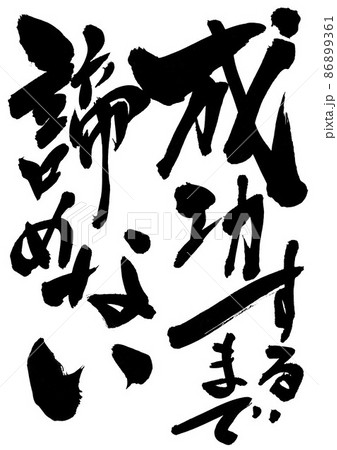 成功するまで
諦めない
PIXTA
pixta.jp - 86899361